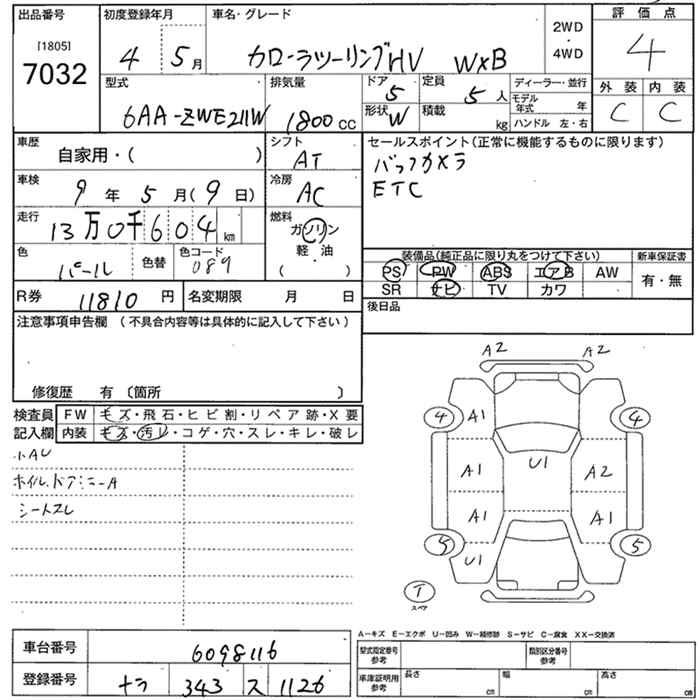 出品番号 初度登録年月 車名・グレード 2WD・4WD 評価点
[1805] 7032 4年 5月 カローラツーリングHV WxB 4
型式 排気量 ドア 5 定員 5人 ディーラー・並行 外装 内装
6AA-ZWE211W 1800cc 形状 W 積載 kg モデル年式 年 C C
ハンドル 左・右
車歴 シフト セールスポイント(正常に機能するものに限ります)
自家用・( ) AT バックカメラ
車検 冷房 ETC
9年 5月(9日) AC
走行 燃料
13万0千604km ガソリン
軽・油
( )
色 色替 色コード 装備品(純正品に限り丸をつけて下さい) 新車保証書
パール 089 PS PW ABS エアB AW 有・無
SR ナビ TV カワ
R券 11810円 名変期限 月 日 後日品
注意事項申告欄 (不具合内容等は具体的に記入して下さい)
修復歴 有 〔箇所 〕
検査員 FW キズ・飛石・ヒビ割・リペア跡・X要
記入欄 内装 キズ・汚レ・コゲ・穴・スレ・キレ・破レ
小AU
ホイル、ドアミラーA
シートスレ
A2 A2
4 A1 4
A1 U1 A2
A1 A1
5 U1 5
T
スペア
A-キズ E-エクボ U-凹み W-補修跡 S-サビ C-腐食 XX-交換済
車台番号 6098116 型式指定番号 参考 類別区分番号 参考
登録番号 ナラ 343 ス 1126 車庫証明用 参考 長さ cm 幅 cm 高さ cm